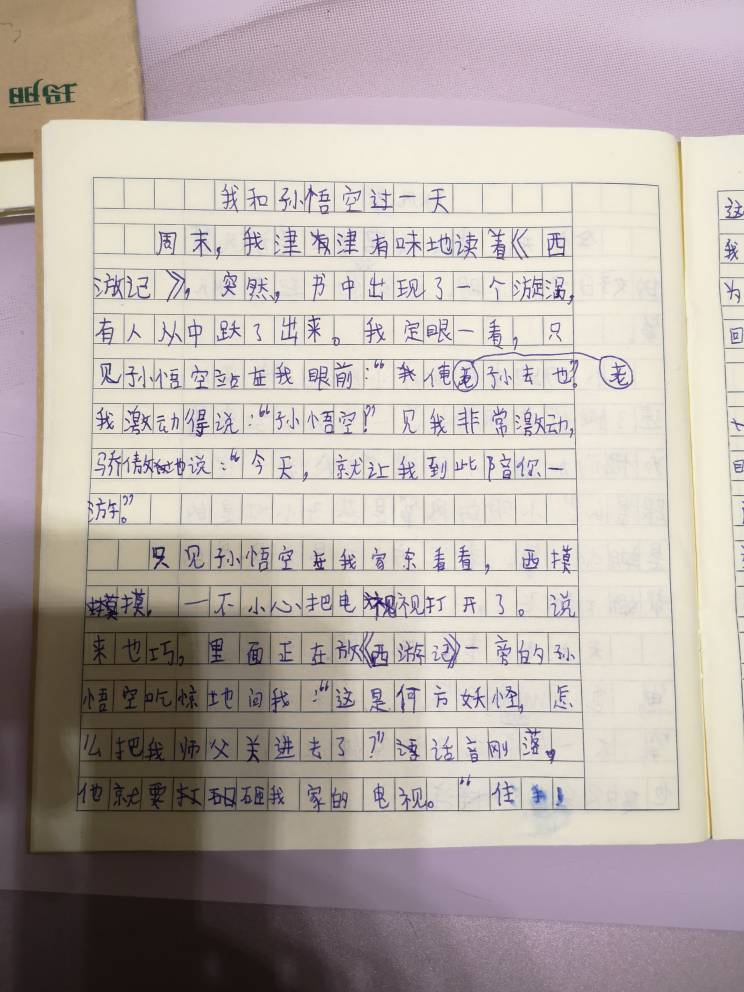 我和孙悟空过一天
周末，我津津有味地读着《西
游记》，突然，书中出现了一个漩涡，
有人从中跃了出来。我定眼一看，只
见孙悟空站在我眼前：“我俺老孙去也？老
我激动得说：“孙悟空？”见我非常激动，
骄傲地说：“今天，就让我到此陪你一
游。”
只见孙悟空在我家东看看，西摸
摸摸，一不小心把电视视打开了。说
来也巧，里面正在放《西游记》一旁的孙
悟空吃惊地问我：“这是何方妖怪，怎
么把我师父关进去了？”语话音刚落，
他就要打砸砸我家的电视。“住手！
这
我
为
回